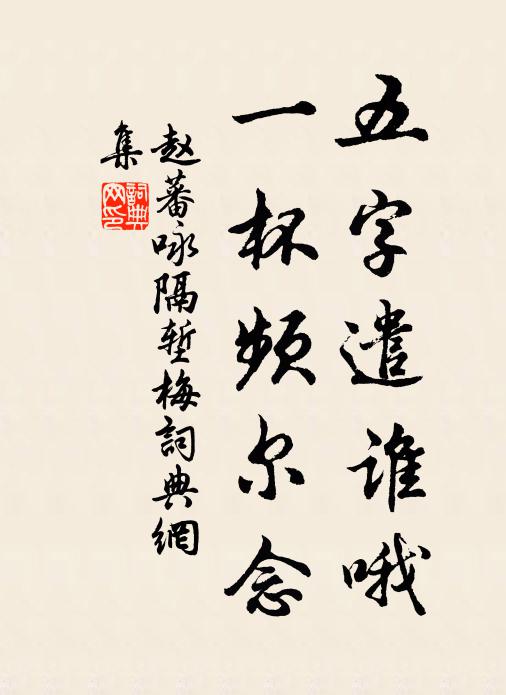 五字遣谁哦
一杯频尔念
赵蕃咏隔堑梅词典網
集
詞典
网印